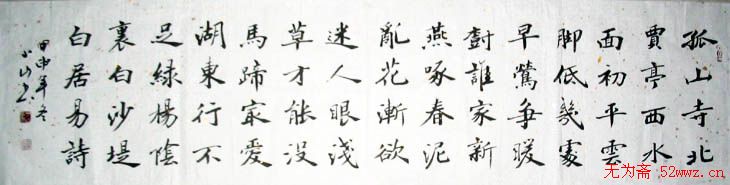 孤山寺北
賈亭西水
面初平雲
脚低幾處
早鶯争暖
樹誰家新
燕啄春泥
亂花漸欲
迷人眼淺
草才能没
馬蹄冣愛
湖東行不
足綠楊陰
裏白沙堤
白居易詩
甲申年冬
小山
无为斋 52wwz.cn